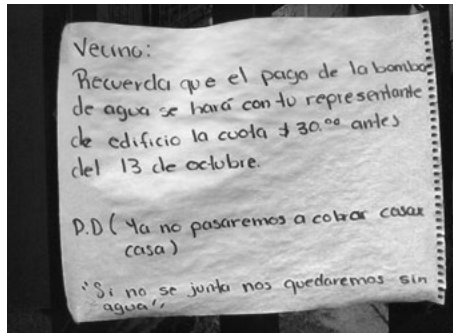 Vecino:
Recuerda que el pago de la bomba
de agua se hará con tu representante
de edificio la cuota $ 30.00 antes
del 13 de octubre.
P.D ( Ya no pasaremos a cobrar casa x
casa)
"Si no se junta nos quedaremos sin
agua"